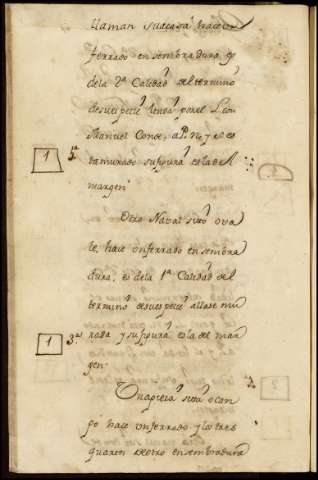 llaman suacasa, hace un
ferrado ensembradura es
dela 2ª Calidad del termino
desu especie linda por el L.
Manuel Conde, a P. N. y es
tamurado su figura es la del
1 2ª
margen
Otro Nabal sitô
le, hace unferrado ensembra
dura, es dela 1ª Calidad del
termino desu especie allase mu
1 3ª
rada y sufigura es la del mar
gen
Otra pieza sita ôcam
po hace unferrado y los tres
quartos de otro ensembradura